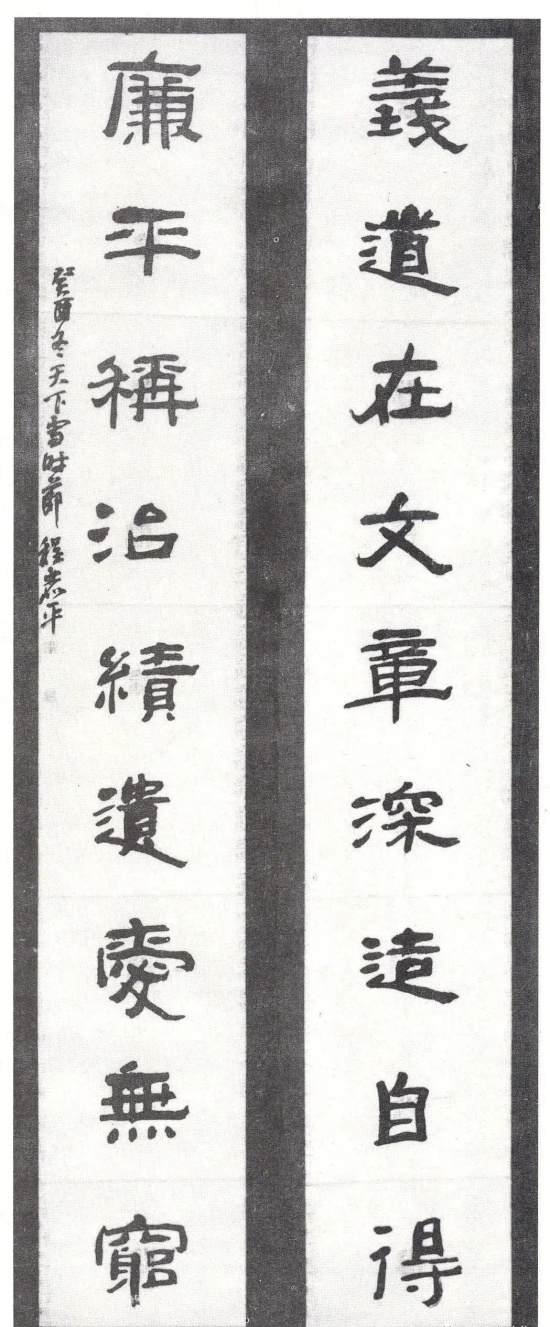 義道在文章深造自得
廉平稱治績遺愛無窮
癸酉冬天下雪時節 程志平